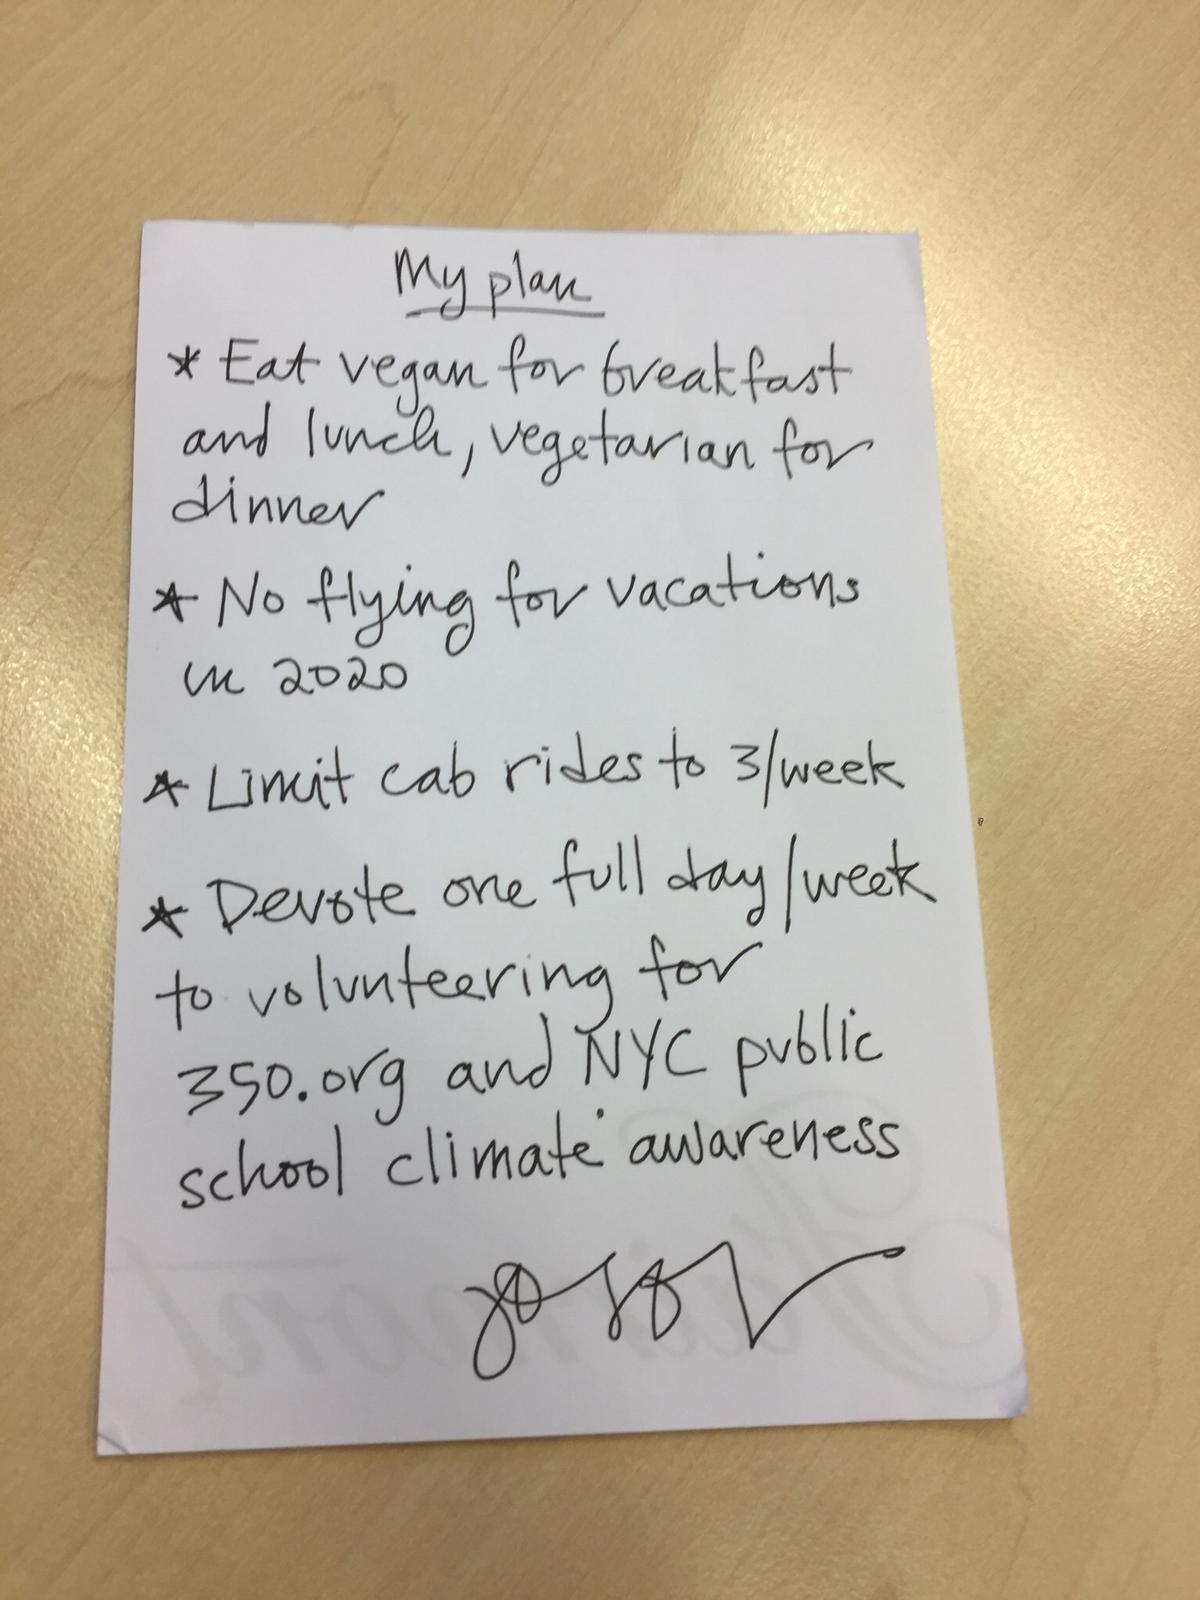 My plan
* Eat vegan for breakfast
and lunch, vegetarian for
dinner
* No flying for vacations
in 2020
* Limit cab rides to 3/week
* Devote one full day/week
to volunteering for
350.org and NYC public
school climate awareness